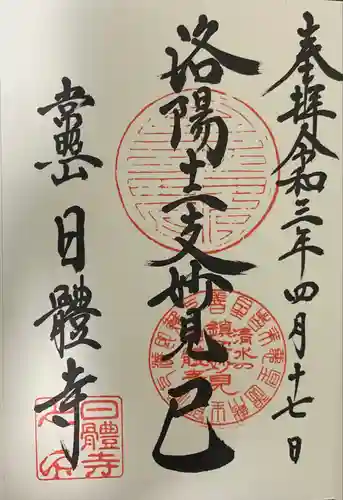 奉拝 令和三年四月十七日
洛陽十二支妙見 巳
常照山 日體寺
清水の
鎮宅妙見
日體寺